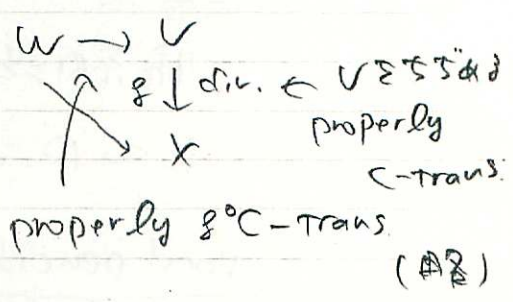 W → V
g ↓ div. ← Vをちぢめる
properly
X
C-trans.
properly g°C-trans.
(略)